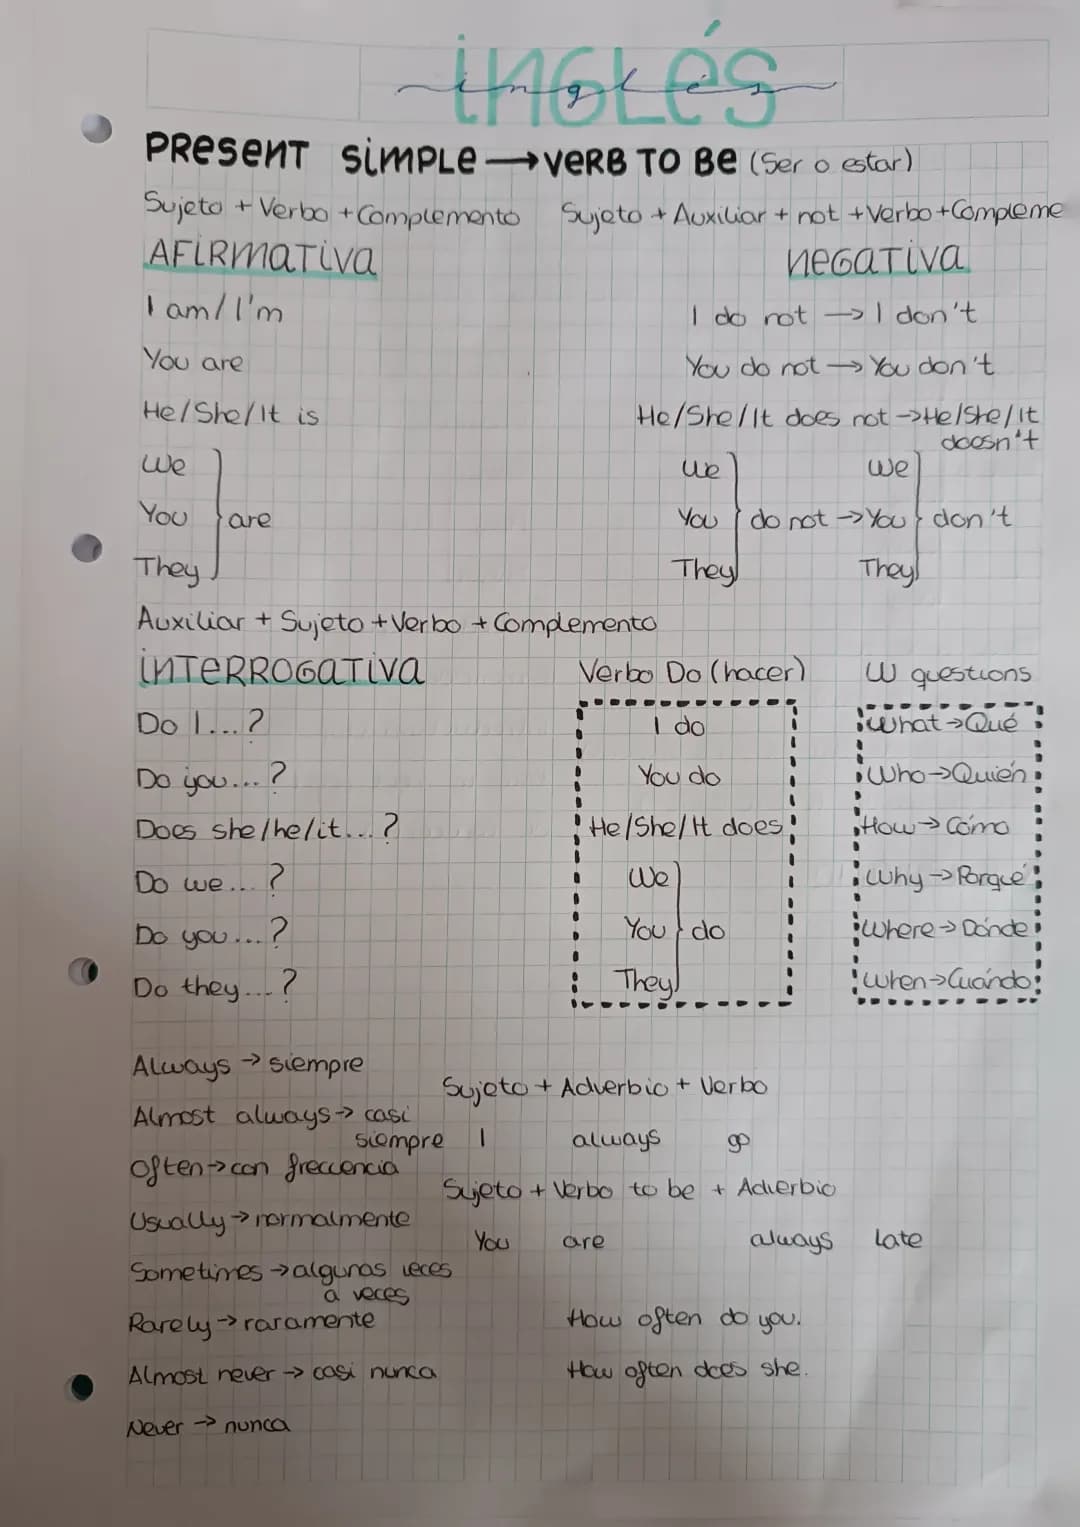 inglés
inglés
PRESENT SIMPLE → VERB TO BE (Ser o estar)
Sujeto + Verbo + Complemento
Sujeto + Auxiliar + not + Verbo + Compleme
AFIRMATIVA
NEGATIVA
I am / I'm
I do not → I don't
You are
You do not → You don't
He/She/It is
He/She/It does not → He/She/it
doesn't
We
You
They
are
We
You
They
do not →
We
You
They
don't
Auxiliar + Sujeto + Verbo + Complemento
INTERROGATIVA
Do I...?
Do you...?
Does she/he/it...?
Do we...?
Do you...?
Do they...?
Verbo Do (hacer)
I do
You do
He/She/It does
We
You
They
do
W questions
What → Qué
Who → Quién
How → Cómo
Why → Porqué
Where → Dónde
When → Cuándo
Always → siempre
Almost always → casi
siempre
Often → con freccencia
Usually → normalmente
Sometimes → algunas veces
a veces
Rarely → raramente
Almost never → casi nunca
Never → nunca
Sujeto + Adverbio + Verbo
I always go
Sujeto + Verbo to be + Adverbio
You are always late
How often do you.
How often does she.